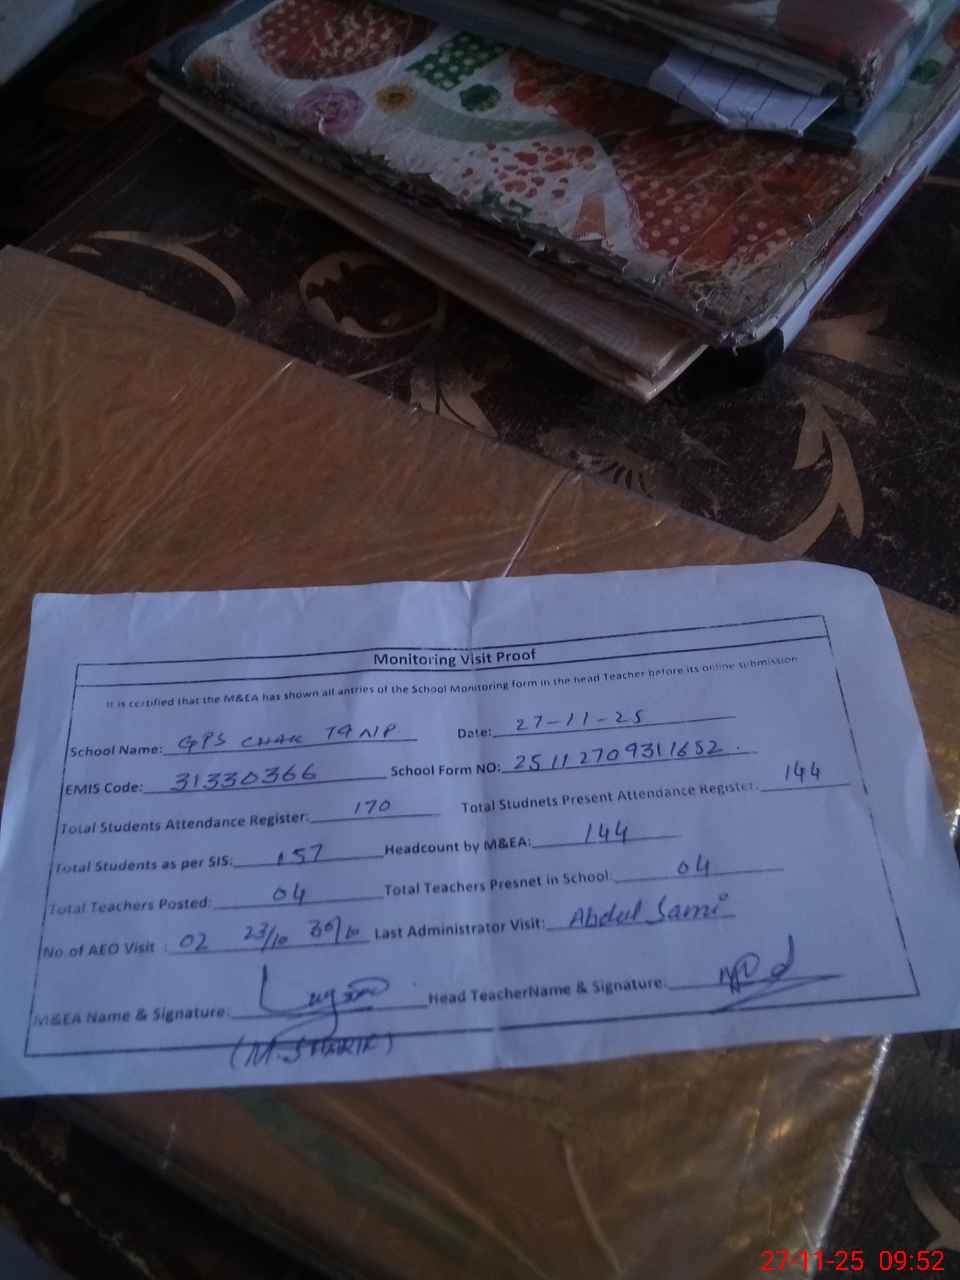 Monitoring Visit Proof
It is certified that the M&EA has shown all antries of the School Monitoring form in the head Teacher before its online submission
School Name: GPS CHAK 79 NP Date: 27-11-25
EMIS Code: 31330366 School Form NO: 25112709311652.
Total Students Attendance Register: 170 Total Studnets Present Attendance Register: 144
Total Students as per SIS: 157 Headcount by M&EA: 144
Total Teachers Posted: 04 Total Teachers Presnet in School: 04
No of AEO Visit : 02 23/10 30/10 Last Administrator Visit: Abdul Sami
M&EA Name & Signature: Head TeacherName & Signature:
(M. SHARIK)
27-11-25 09:52